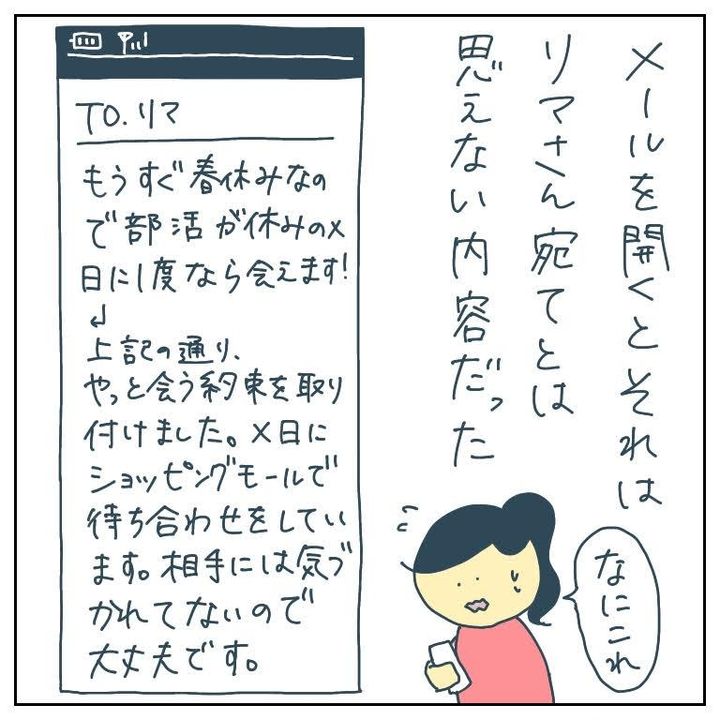 メールを開くとそれは
リマさん宛てとは
思えない内容だった
TO.リマ
もうすぐ春休みなの
で部活が休みの×
日に1度なら会えます!
↲
上記の通り、
やっと会う約束を取り
付けました。×日に
ショッピングモールで
待ち合わせをしてい
ます。相手には気づ
かれてないので
大丈夫です。
なにこれ